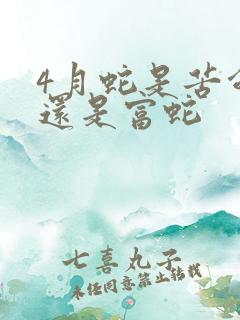 4月蛇是苦命
還是富蛇
七喜丸子
未任同意禁止轉載